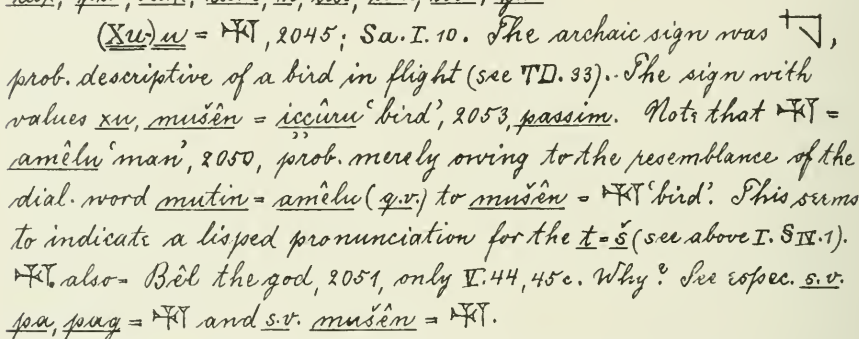 (Xu-)u = 𒄷, 2045; Sa. I. 10. The archaic sign was ,
prob. descriptive of a bird in flight (see TD. 33). The sign with
values xu, mušên = iccûru ‘bird’, 2053, passim. Note that 𒄷 =
amêlu ‘man’, 2050, prob. merely owing to the resemblance of the
dial. word mutin = amêlu (q.v.) to mušên = 𒄷 ‘bird’. This seems
to indicate a lisped pronunciation for the t = š (see above I. § IV. 1).
𒄷 also = Bêl the god, 2051, only V. 44, 45c. Why? See espec. s.v.
pa, pag = 𒄷 and s.v. mušên = 𒄷.